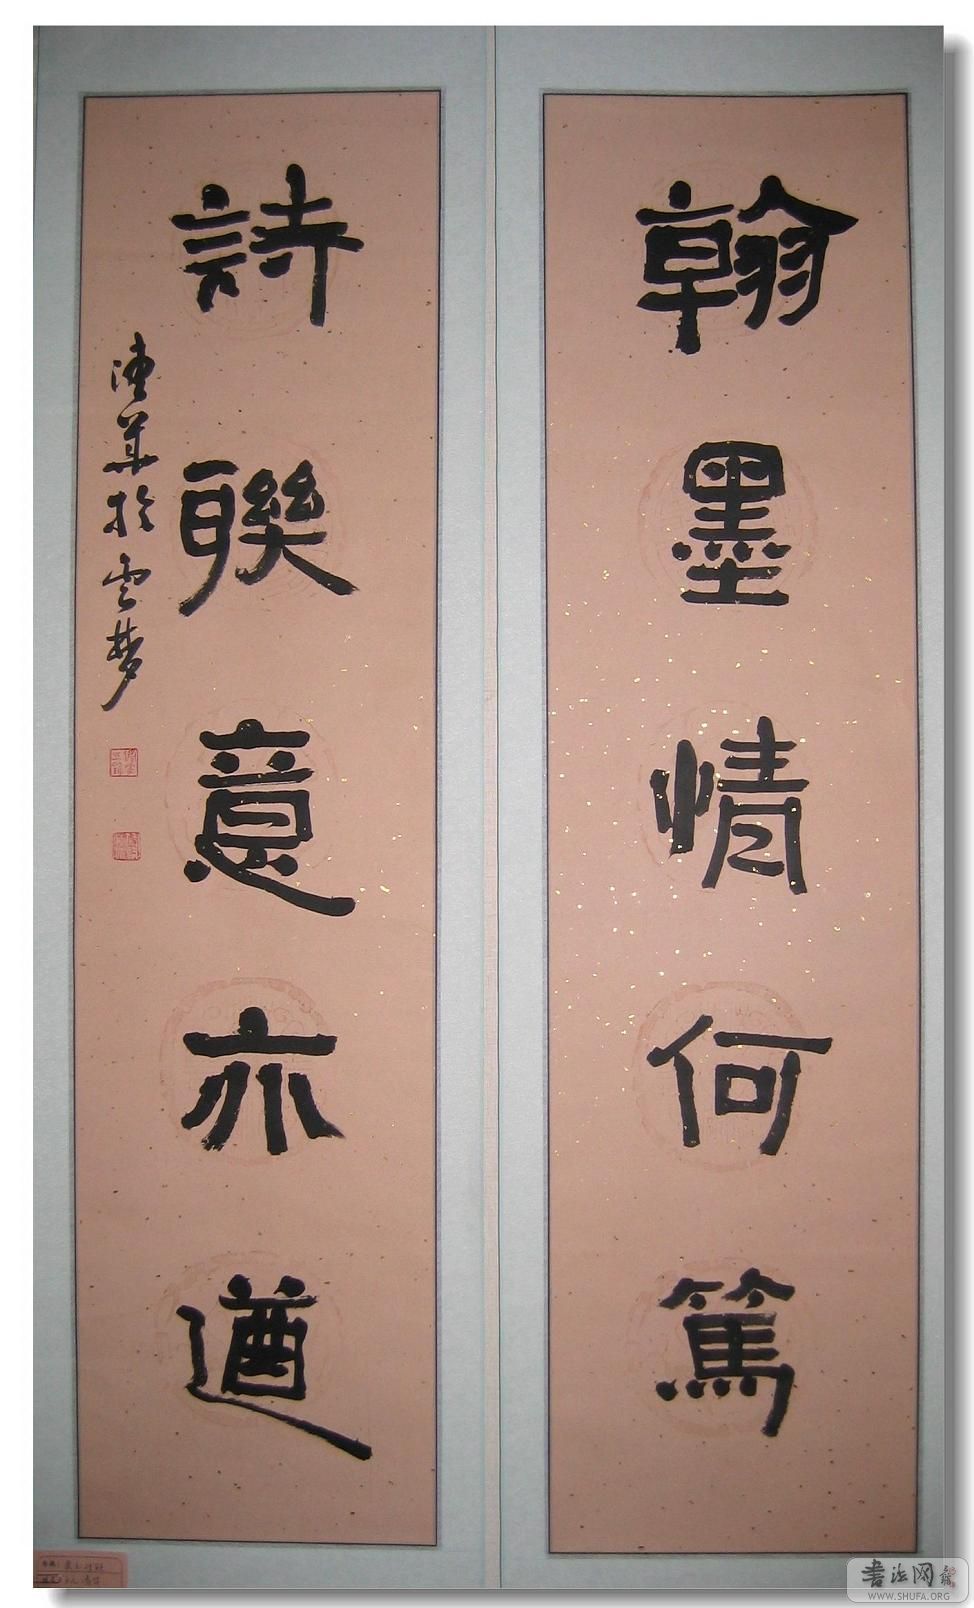 翰墨情何篤
詩聯意亦遒
清華於雲夢
书法网
WWW.SHUFA.ORG